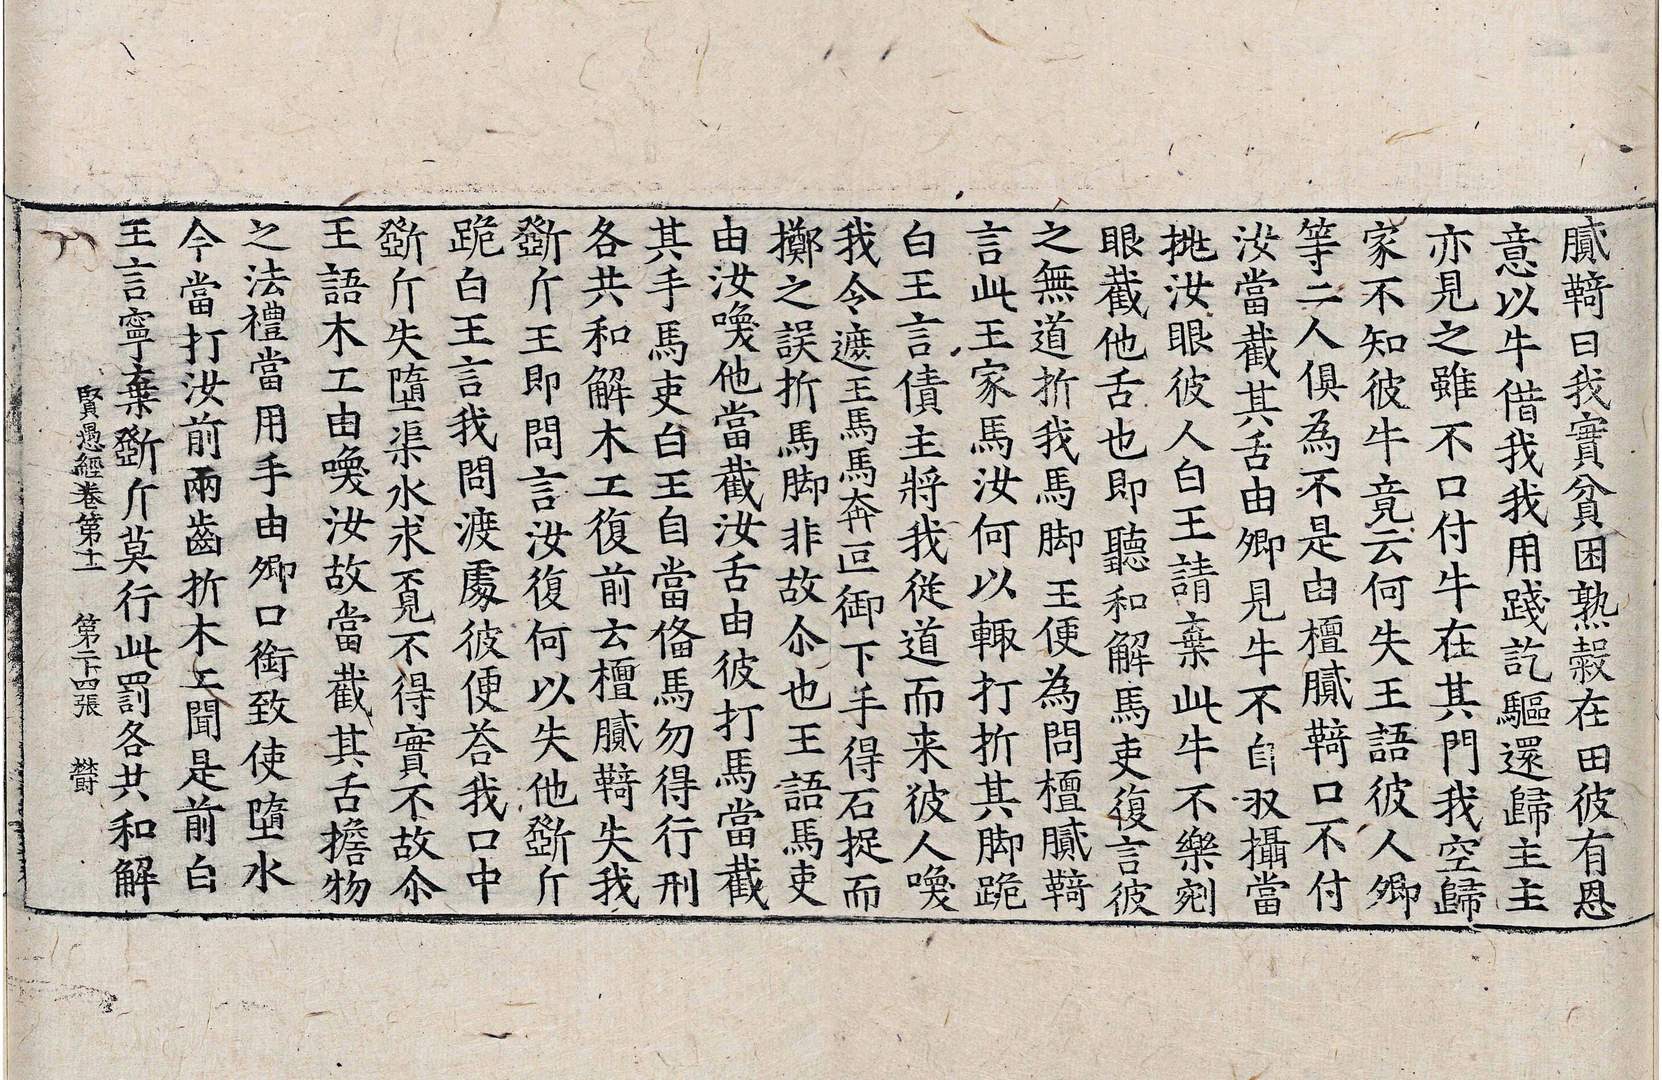 膩䩭曰我實貧困熟穀在田彼有恩
意以牛借我我用踐訖驅還歸主主
亦見之雖不口付牛在其門我空歸
家不知彼牛竟云何失王語彼人卿
等二人俱為不是由檀膩䩭口不付
汝當截其舌由卿見牛不自収攝當
挑汝眼彼人白王請棄此牛不樂剜
眼截他舌也即聽和解馬吏復言彼
之無道折我馬脚王便為問檀膩䩭
言此王家馬汝何以輙打折其脚跪
白王言債主將我從道而来彼人喚
我令遮王馬馬奔叵御下手得石捉而
擲之誤折馬脚非故尒也王語馬吏
由汝喚他當截汝舌由彼打馬當截
其手馬吏白王自當俻馬勿得行刑
各共和解木工復前云檀膩䩭失我
斲斤王即問言汝復何以失他斲斤
跪白王言我問渡處彼便荅我口中
斲斤失墮渠水求覓不得實不故尒
王語木工由喚汝故當截其舌擔物
之法禮當用手由卿口銜致使墮水
今當打汝前兩齒折木工聞是前白
王言寧棄斲斤莫行此罰各共和解
賢愚經卷第十一 第二十四張 欝